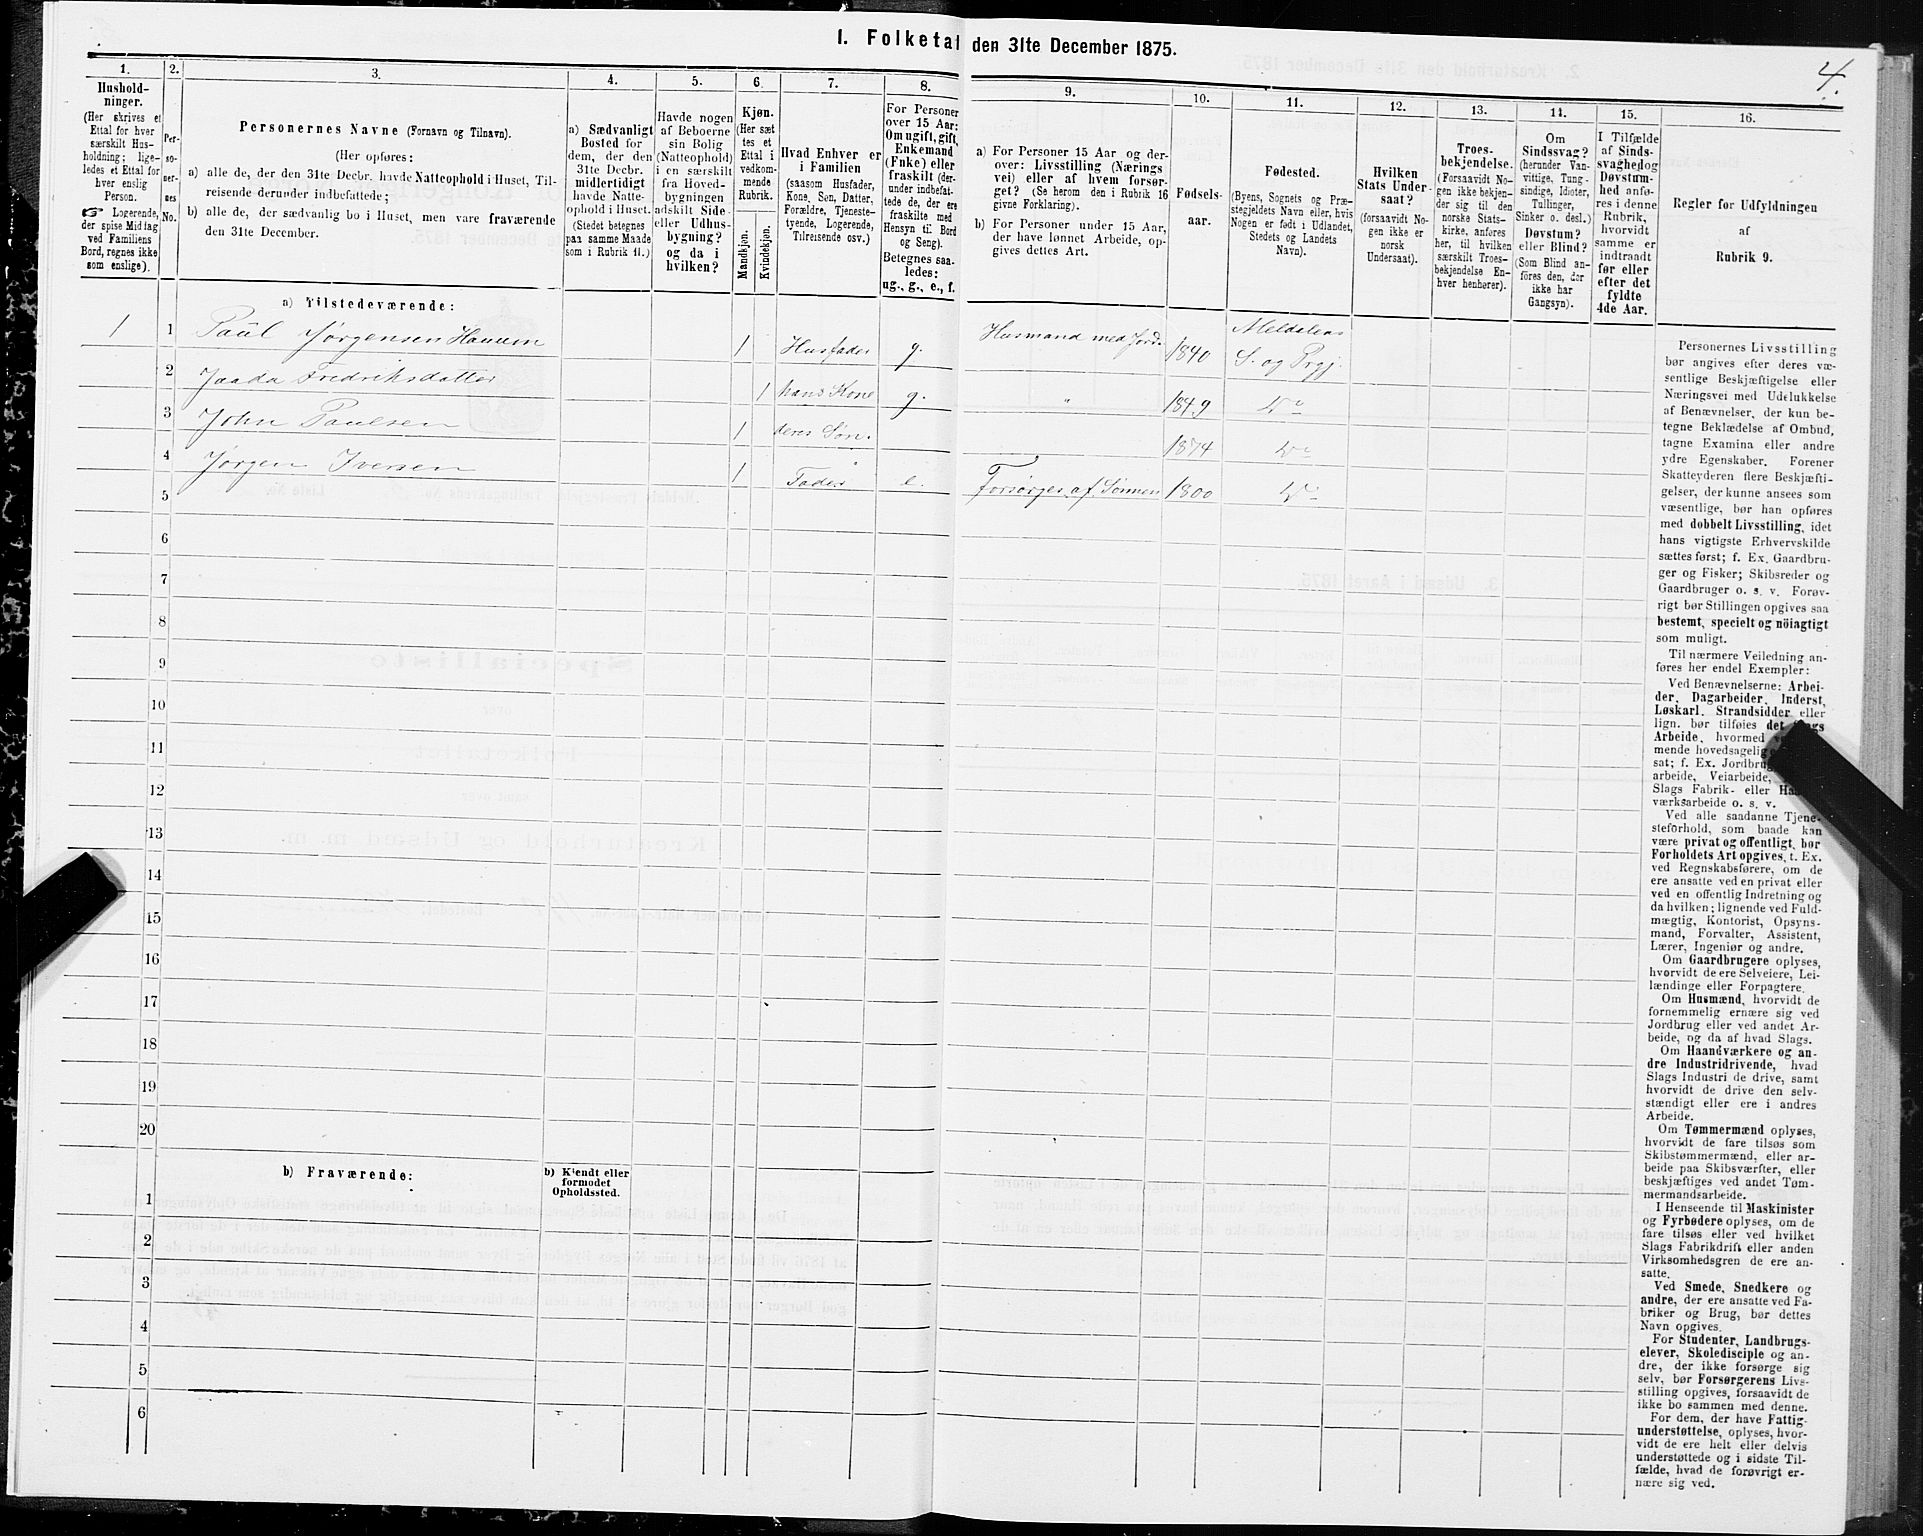 1. Folketal den 31te December 1875.
4.
1.
Hushold-
ninger.
(Her skrives et
Ettal for hver
særskilt Hus-
holdning; lige-
ledes et Ettal for
hver enslig
Person.
☞ Logerende,
der spise Middag
ved Familiens
Bord, regnes ikke
som enslige).
2.
Per-
so-
ner-
nes
No.
3.
Personernes Navne (Fornavn og Tilnavn).
(Her opføres:
a) alle de, der den 31te Decbr. havde Natteophold i Huset, Til-
reisende derunder indbefattede;
b) alle de, der sædvanlig bo i Huset, men vare fraværende
den 31te December.
4.
a) Sædvanligt
Bosted for
dem, der den
31te Decbr.
midlertidigt
havde Natte-
ophold i Huset.
(Stedet betegnes
paa samme Maade
som i Rubrik 11.)
5.
Havde nogen
af Beboerne
sin Bolig
(Natteophold)
i en særskilt
fra Hoved-
bygningen
adskilt Side-
eller Udhus-
bygning?
og da i
hvilken?
6.
Kjøn.
(Her sæt-
tes et
Ettal i
vedkom-
mende
Rubrik.
Mandkjøn.
Kvindekjøn.
7.
Hvad Enhver er
i Familien
(saasom Husfader,
Kone, Søn, Datter,
Forældre, Tjeneste-
tyende, Logerende,
Tilreisende osv.)
8.
For Personer
over 15 Aar:
Om ugift, gift,
Enkemand
(Enke) eller
fraskilt (der-
under indbefat-
tede de, der ere
fraskilte med
Hensyn til Bord
og Seng).
Betegnes saa-
ledes:
ug., g., e., f.
9.
a) For Personer 15 Aar og der-
over: Livsstilling (Nærings
vei) eller af hvem forsør-
get? (Se herom den i Rubrik 16
givne Forklaring).
b) For Personer under 15 Aar,
der have lønnet Arbeide, op-
gives dettes Art.
10.
Fødsels-
aar.
11.
Fødested.
(Byens, Sognets og Præ-
stegjeldets Navn eller, hvis
Nogen er født i Udlandet,
Stedets og Landets
Navn).
12.
Hvilken
Stats Under-
saat?
(forsaavidt No-
gen ikke er
norsk
Undersaat).
13.
Troes-
bekjendelse.
(Forsaavidt No-
gen ikke bekjen-
der sig til den
norske Stats-
kirke, anføres
her, til hvilken
særskilt Troes-
bekjendelse En-
hver henhører).
14.
Om
Sindssvag?
(herunder Van-
vittige, Tung-
sindige, Idioter,
Tullinger,
Sinker o. desl.)
Døvstum?
eller Blind?
(Som Blind an-
føres den, der
ikke har
Gangsyn).
15.
I Tilfælde
af Sinds-
svaghed og
Døvstum-
hed anfø-
res i denne
Rubrik,
hvorvidt
samme er
indtraadt
før eller
efter det
fyldte
4de Aar.
16.
Regler for Udfyldningen
af
Rubrik 9.
a) Tilstedeværende:
1 1 Paul Jørgensen Haugen 1 Husfader g. Husmand med Jord. 1840 Meldalens
S. og Prgj.
2 Jaada Fredriksdatter 1 hans Kone g. " 1849 Do
3 John Paulsen 1 deres Søn. 1874 Do
4 Jørgen Iversen 1 Fader e. Forsørges af Sønnen 1800 Do
5
6
7
8
9
10
11
12
13
14
15
16
17
18
19
20
b) Fraværende:
b) Kjendt eller
formodet
Opholdssted.
1
2
3
4
5
6
Personernes Livsstilling
bør angives efter deres væ-
sentlige Beskjæftigelse eller
Næringsvei med Udelukkelse
af Benævnelser, der kun be-
tegne Beklædelse af Ombud,
tagne Examina eller andre
ydre Egenskaber. Forener
Skatteyderen flere Beskjæfti-
gelser, der kunne ansees som
væsentlige, bør han opføres
med dobbelt Livsstilling, idet
hans vigtigste Erhvervskilde
sættes først; f. Ex. Gaardbru-
ger og Fisker; Skibsreder og
Gaardbruger o. s. v. Forøv-
rigt bør Stillingen opgives saa
bestemt, specielt og nöiagtigt
som muligt.
Til nærmere Veiledning an-
føres her endel Exempler:
Ved Benævnelserne: Arbei-
der, Dagarbeider, Inderst,
Løskarl, Strandsidder eller
lign. bør tilføies det Slags
Arbeide, hvormed
mende hovedsagelig
sat; f. Ex. Jordbrug
arbeide, Veiarbeide,
Slags Fabrik- eller
værksarbeide o. s. v.
Ved alle saadanne Tjene-
steforhold, som baade kan
være privat og offentligt, bør
Forholdets Art opgives, t. Ex.
ved Regnskabsførere, om de
ere ansatte ved en privat eller
ved en offentlig Indretning og
da hvilken; lignende ved Fuld-
mægtig, Kontorist, Opsyns-
mand, Forvalter, Assistent,
Lærer, Ingeniør og andre.
Om Gaardbrugere oplyses,
hvorvidt de ere Selveiere, Lei-
lændinge eller Forpagtere.
Om Husmænd, hvorvidt de
fornemmelig ernære sig ved
Jordbrug eller ved andet Ar-
beide, og da af hvad Slags.
Om Haandværkere og an-
dre Industridrivende, hvad
Slags Industri de drive, samt
hvorvidt de drive den selv-
stændigt eller ere i andres
Arbeide.
Om Tømmermænd oplyses,
hvorvidt de fare tilsøs som
Skibstømmermænd, eller ar-
beide paa Skibsværfter, eller
beskjæftiges ved andet Tøm-
mermandsarbeide.
I Henseende til Maskinister
og Fyrbødere oplyses, om de
fare tilsøs eller ved hvilket
Slags Fabrikdrift eller anden
Virksomhedsgren de ere an-
satte.
Ved Smede, Snedkere og
andre, der ere ansatte ved Fa-
briker og Brug, bør dettes
Navn opgives.
For Studenter, Landbrugs-
elever, Skoledisciple og an-
dre, der ikke forsørge sig
selv, bør Forsørgerens Livs-
stilling opgives, forsaavidt de
ikke bo sammen med denne.
For dem, der have Fattig-
understøttelse, oplyses, hvor-
vidt de ere helt eller delvis
understøttede og i sidste Til-
fælde, hvad de forøvrigt er-
nære sig ved.